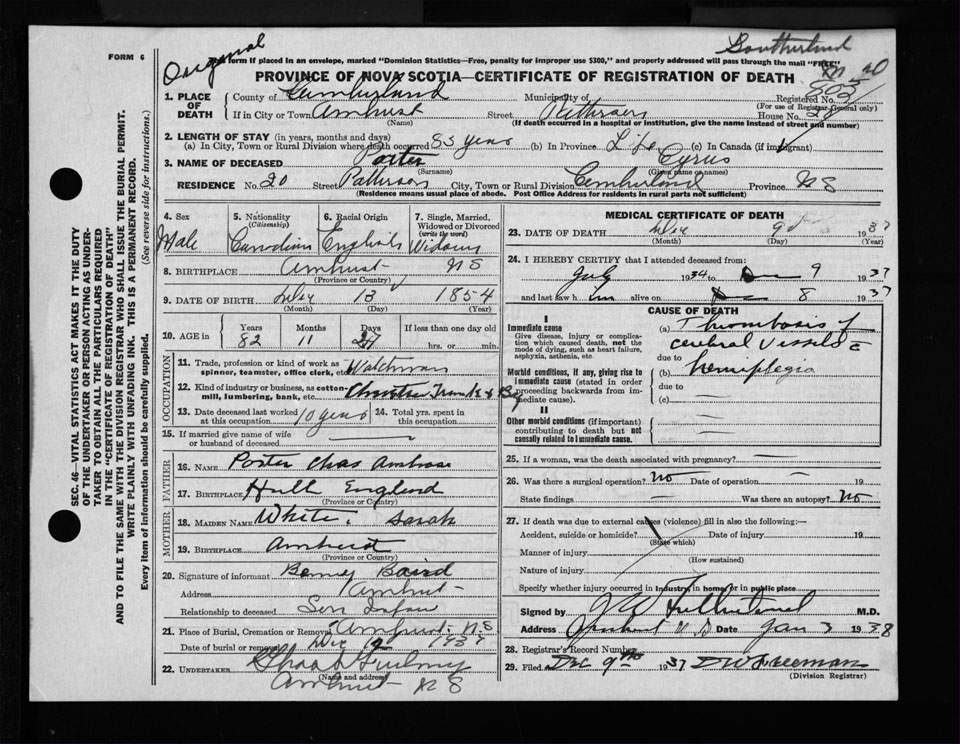 FORM 6
Original
Southerland
This form if placed in an envelope, marked "Dominion Statistics—Free, penalty for improper use $300," and properly addressed will pass through the mail "FREE"
PROVINCE OF NOVA SCOTIA—CERTIFICATE OF REGISTRATION OF DEATH
1. PLACE OF DEATH
County of Cumberland Municipality of Registered No. 803
(For use of Registrar General only)
If in City or Town Amherst Street Pattersons House No. 20
(Name) (If death occurred in a hospital or institution, give the name instead of street and number)
2. LENGTH OF STAY (in years, months and days)
(a) In City, Town or Rural Division where death occurred 83 years (b) In Province Life (c) In Canada (if immigrant)
3. NAME OF DECEASED Porter Cyrus
(Surname) (Given name or names)
RESIDENCE No. 20 Street Pattersons City, Town or Rural Division Cumberland Province NS
(Residence means usual place of abode. Post Office Address for residents in rural parts not sufficient)
SEC. 46—VITAL STATISTICS ACT MAKES IT THE DUTY
OF THE UNDERTAKER OR PERSON ACTING AS UNDER-
TAKER TO OBTAIN ALL THE PARTICULARS REQUIRED
IN THE "CERTIFICATE OF REGISTRATION OF DEATH"
AND TO FILE THE SAME WITH THE DIVISION REGISTRAR WHO SHALL ISSUE THE BURIAL PERMIT.
WRITE PLAINLY WITH UNFADING INK. THIS IS A PERMANENT RECORD.
Every item of information should be carefully supplied. (See reverse side for instructions.)
4. Sex
Male
5. Nationality
(Citizenship)
Canadian
6. Racial Origin
English
7. Single, Married,
Widowed or Divorced
(write the word)
8. BIRTHPLACE Amherst NS
(Province or Country)
9. DATE OF BIRTH 13 1854
(Month) (Day) (Year)
10. AGE in
Years Months Days If less than one day
82 11 hrs. or min.
OCCUPATION
11. Trade, profession or kind of work as
spinner, teamster, office clerk, etc. Watchman
12. Kind of industry or business, as cotton-
mill, lumbering, bank, etc.
13. Date deceased last worked
at this occupation 10 years
14. Total yrs. spent in
this occupation
15. If married give name of wife
or husband of deceased
FATHER
16. NAME Porter Chas Ambrose
17. BIRTHPLACE Hull England
(Province or Country)
MOTHER
18. MAIDEN NAME White, Sarah
19. BIRTHPLACE Amherst
(Province or Country)
20. Signature of informant Baird
Address Amherst
Relationship to deceased Son In law
21. Place of Burial, Cremation or Removal Amherst NS
Date of burial or removal Dec 1937
22. UNDERTAKER
(Name and address)
Amherst NS
MEDICAL CERTIFICATE OF DEATH
23. DATE OF DEATH 9 1937
(Month) (Day) (Year)
24. I HEREBY CERTIFY that I attended deceased from:
July 1934 to 9 1937
and last saw him alive on 8 1937
CAUSE OF DEATH
I
Immediate cause
Give disease, injury or complica-
tion which caused death, not the
mode of dying, such as heart failure,
asphyxia, asthenia, etc.
Morbid conditions, if any, giving rise to
immediate cause (stated in order
proceeding backwards from im-
mediate cause).
II
Other morbid conditions (if important)
contributing to death but not
causally related to immediate cause.
(a) Thrombosis of
cerebral vessels
due to
(b) hemiplegia
due to
(c)
25. If a woman, was the death associated with pregnancy?
26. Was there a surgical operation? No Date of operation 19
State findings Was there an autopsy? No
27. If death was due to external causes (violence) fill in also the following:—
Accident, suicide or homicide? Date of injury 19
(State which)
Manner of injury
(How sustained)
Nature of injury
Specify whether injury occurred in industry, in home, or in public place
Signed by M.D.
Address Amherst N.S Date Jan 3 1938
28. Registrar's Record Number
29. Filed Dec 9th 1937 DW Freeman
(Division Registrar)